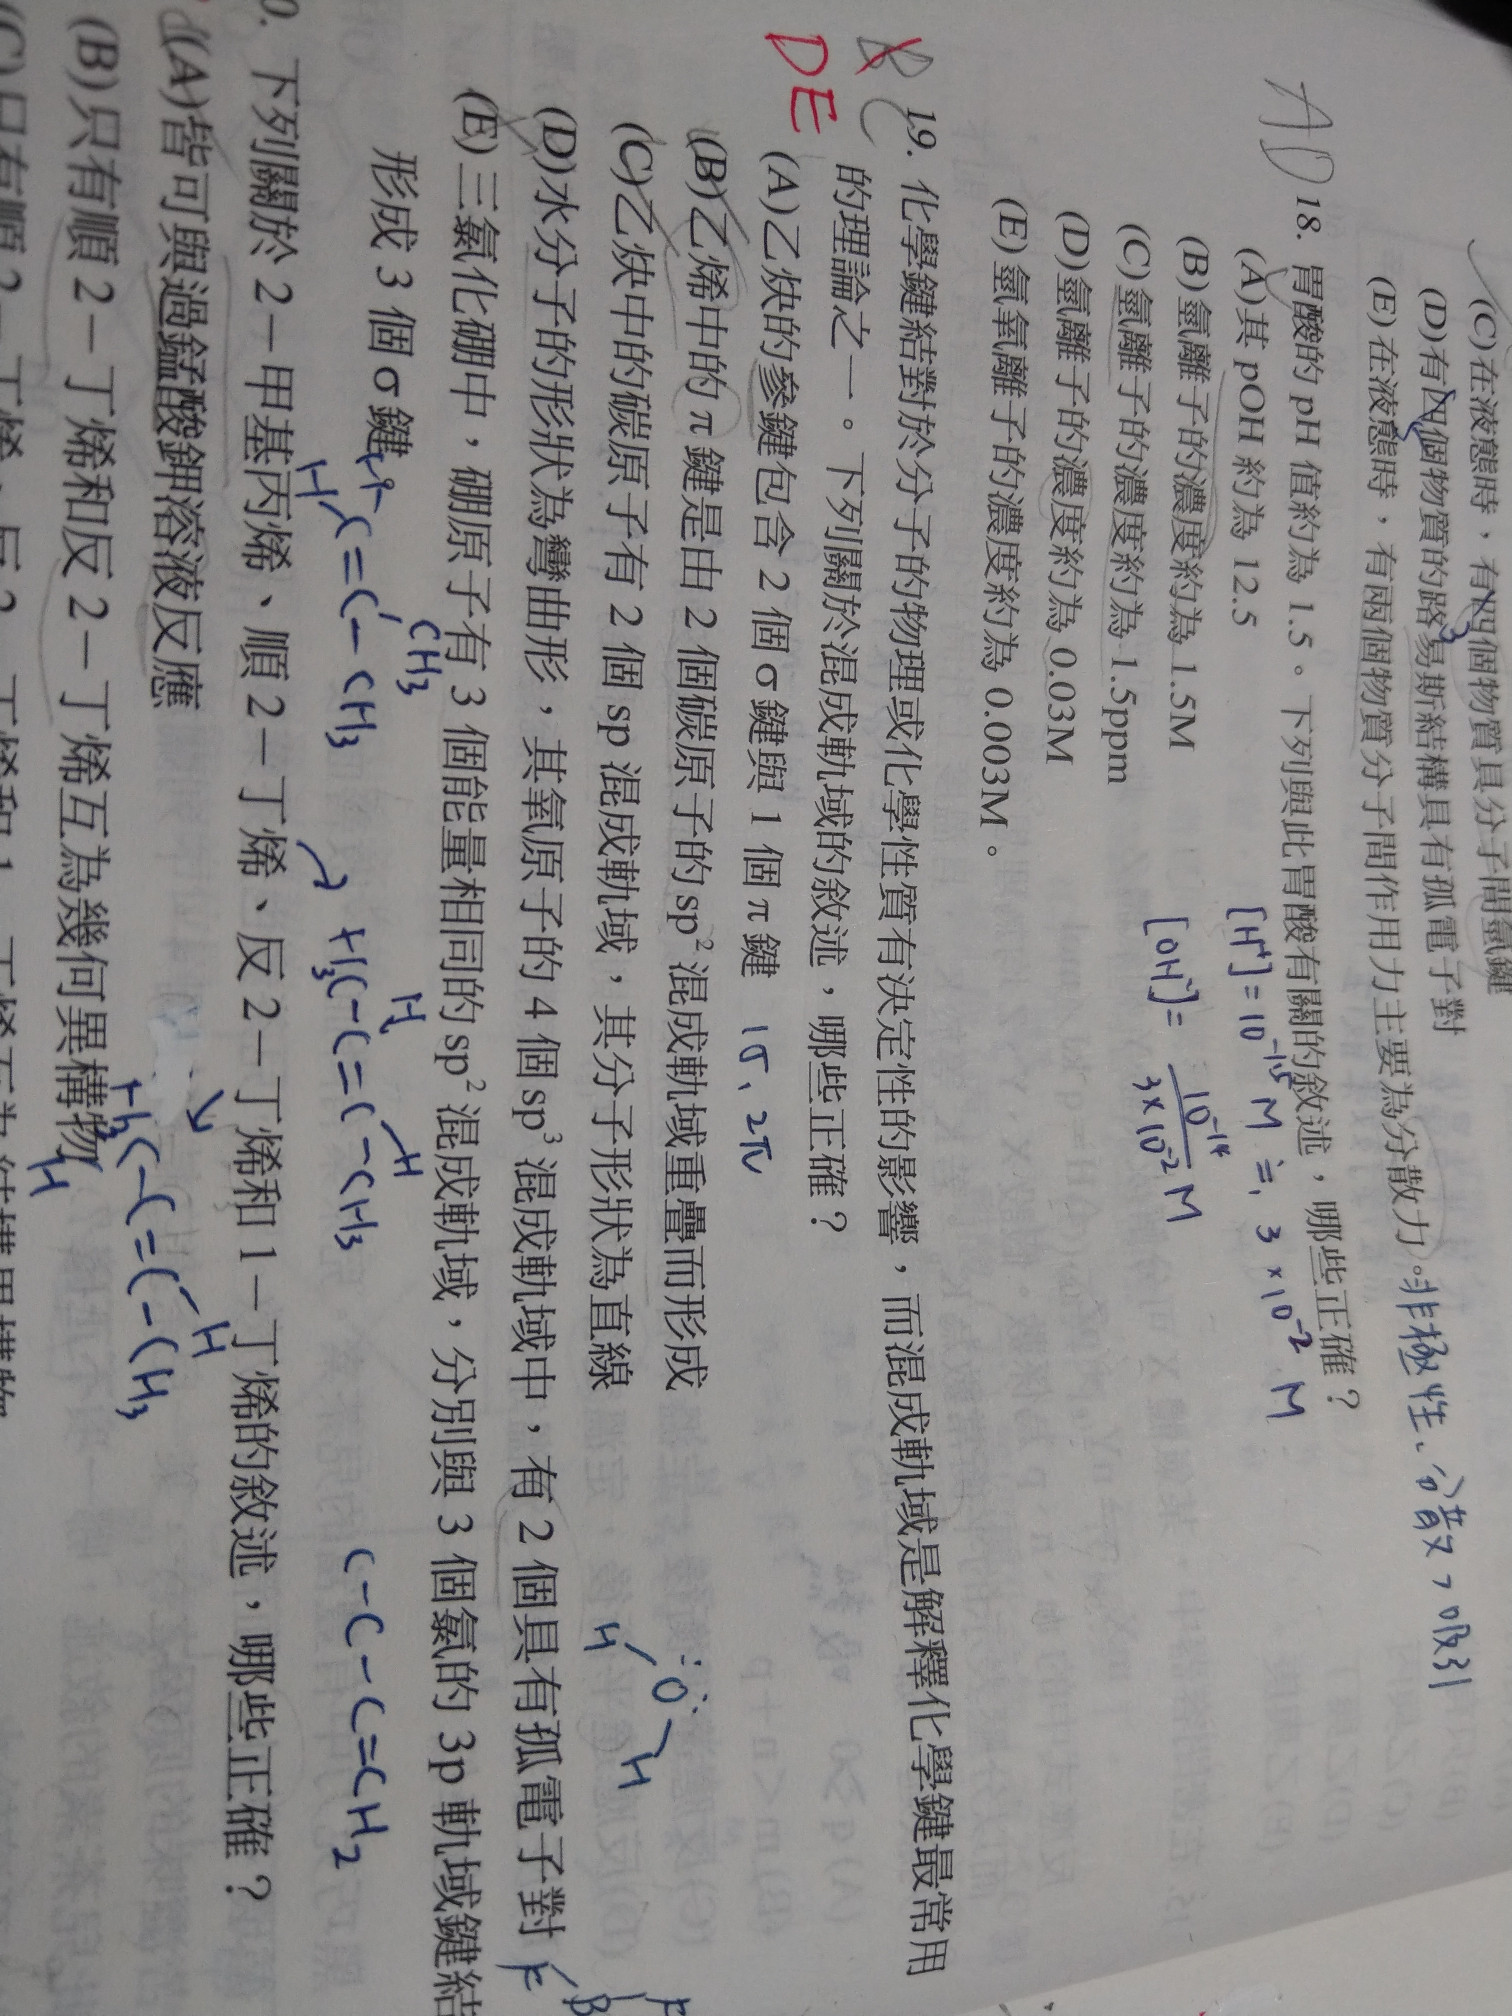 (C)在液態時，有四個物質具分子間氫鍵
(D)有四個物質的路易斯結構具有孤電子對
3
(E)在液態時，有兩個物質分子間作用力主要為分散力。非極性、分散，吸引
AD 18. 胃酸的 pH 值約為 1.5。下列與此胃酸有關的敘述，哪些正確？
(A)其 pOH 約為 12.5
[H⁺]=10^-1.5 M ≒ 3×10^-2 M
(B)氫離子的濃度約為 1.5M
[OH⁻]= 10^-14 / 3×10^-2 M
(C)氫離子的濃度約為 1.5ppm
(D)氫離子的濃度約為 0.03M
(E)氫氧離子的濃度約為 0.003M。
DE
19. 化學鍵結對於分子的物理或化學性質有決定性的影響，而混成軌域是解釋化學鍵最常用
的理論之一。下列關於混成軌域的敘述，哪些正確？
(A)乙炔的參鍵包含 2 個 σ 鍵與 1 個 π 鍵 1σ、2π
(B)乙烯中的 π 鍵是由 2 個碳原子的 sp² 混成軌域重疊而形成
(C)乙炔中的碳原子有 2 個 sp 混成軌域，其分子形狀為直線
H O H
(D)水分子的形狀為彎曲形，其氧原子的 4 個 sp³ 混成軌域中，有 2 個具有孤電子對
(E)三氯化硼中，硼原子有 3 個能量相同的 sp² 混成軌域，分別與 3 個氯的 3p 軌域鍵結
形成 3 個 σ 鍵
CH3
H C=C-CH3
H H
H3C-C=C-CH3
C-C-C=CH2
0. 下列關於 2－甲基丙烯、順 2－丁烯、反 2－丁烯和 1－丁烯的敘述，哪些正確？
(A)皆可與過錳酸鉀溶液反應
H
H3C-C=C-CH3
H
(B)只有順 2－丁烯和反 2－丁烯互為幾何異構物